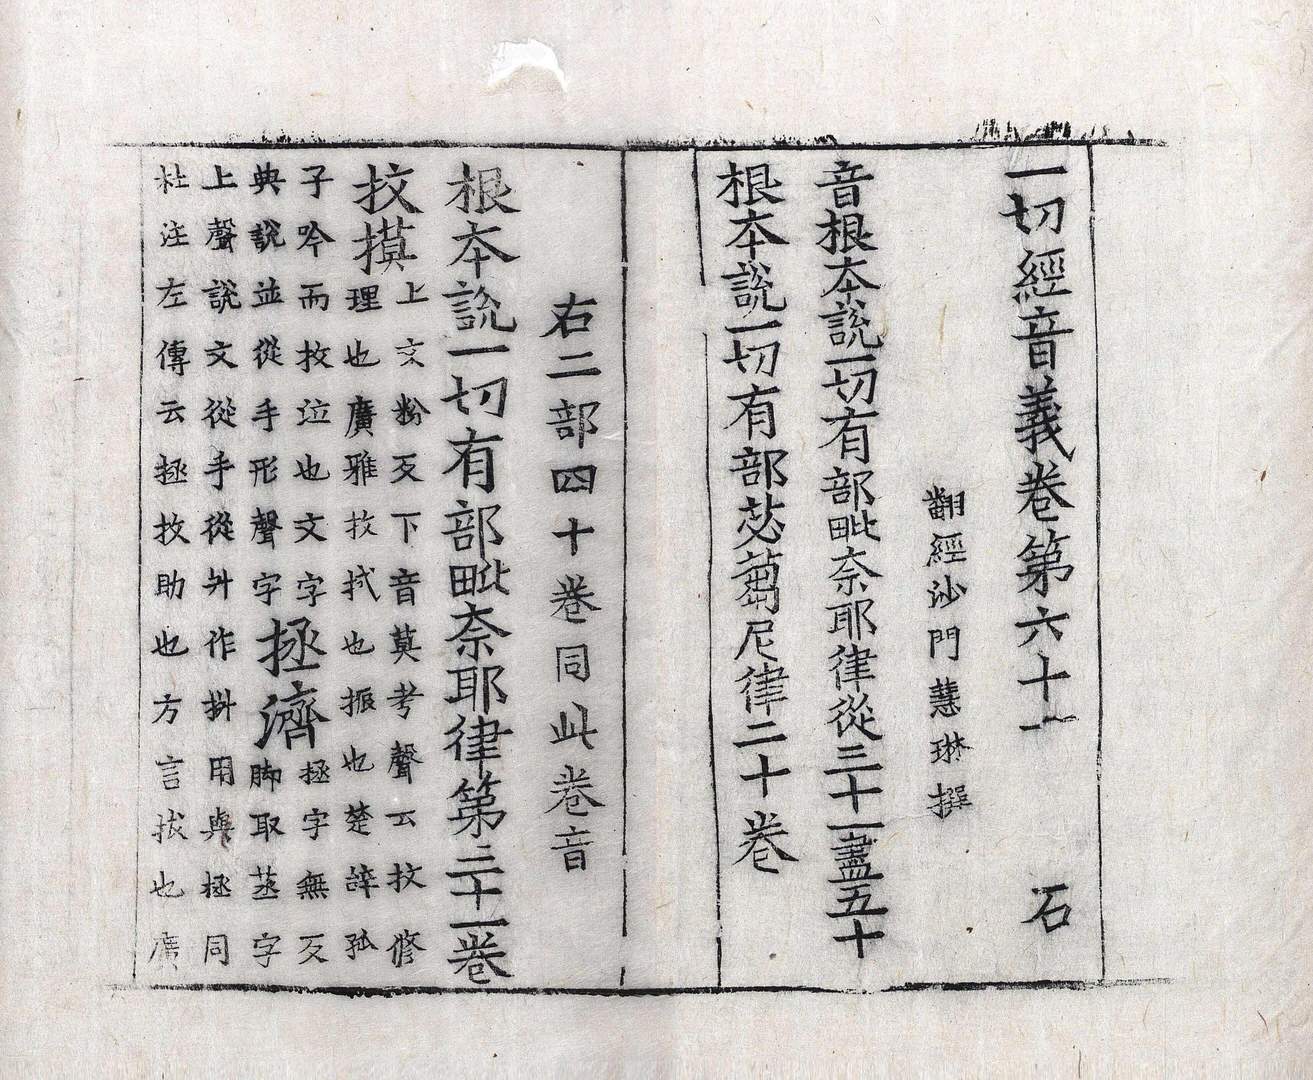 一切經音義卷第六十一 石
翻經沙門慧琳撰
音根本說一切有部毗奈耶律從三十一盡五十
根本說一切有部苾蒭尼律二十卷
右二部四十卷同此卷音
根本說一切有部毗奈耶律第三十一卷
抆摸上文粉反下音莫考聲云抆修
理也廣雅抆拭也振也楚辭孤
子吟而抆泣也文字
典說並從手形聲字
拯濟拯字無反
脚取蒸字
上聲說文從手從廾作抍用與拯同
杜注左傳云拯救助也方言拔也廣